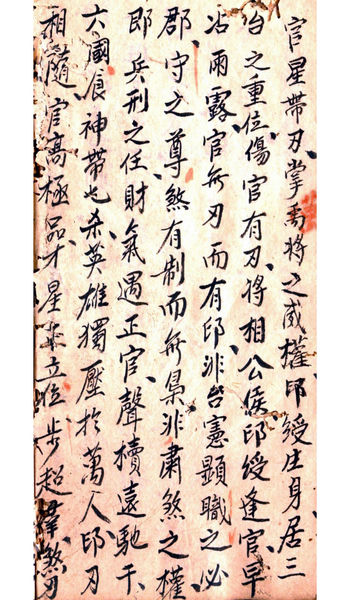 官星帶刃掌萬將之威權印綬庄身居三
台之重位傷官有刃將相公侯印綬逢官早
沾雨露官無刃而有印非台憲顯職之必
郡守之尊煞有制而無梟非肅煞之權
即兵刑之任財氣遇正官聲櫝遠馳于
六國食神帶七杀英雄獨壓於萬人印刃
相隨官高極品才星立位步超群煞刃